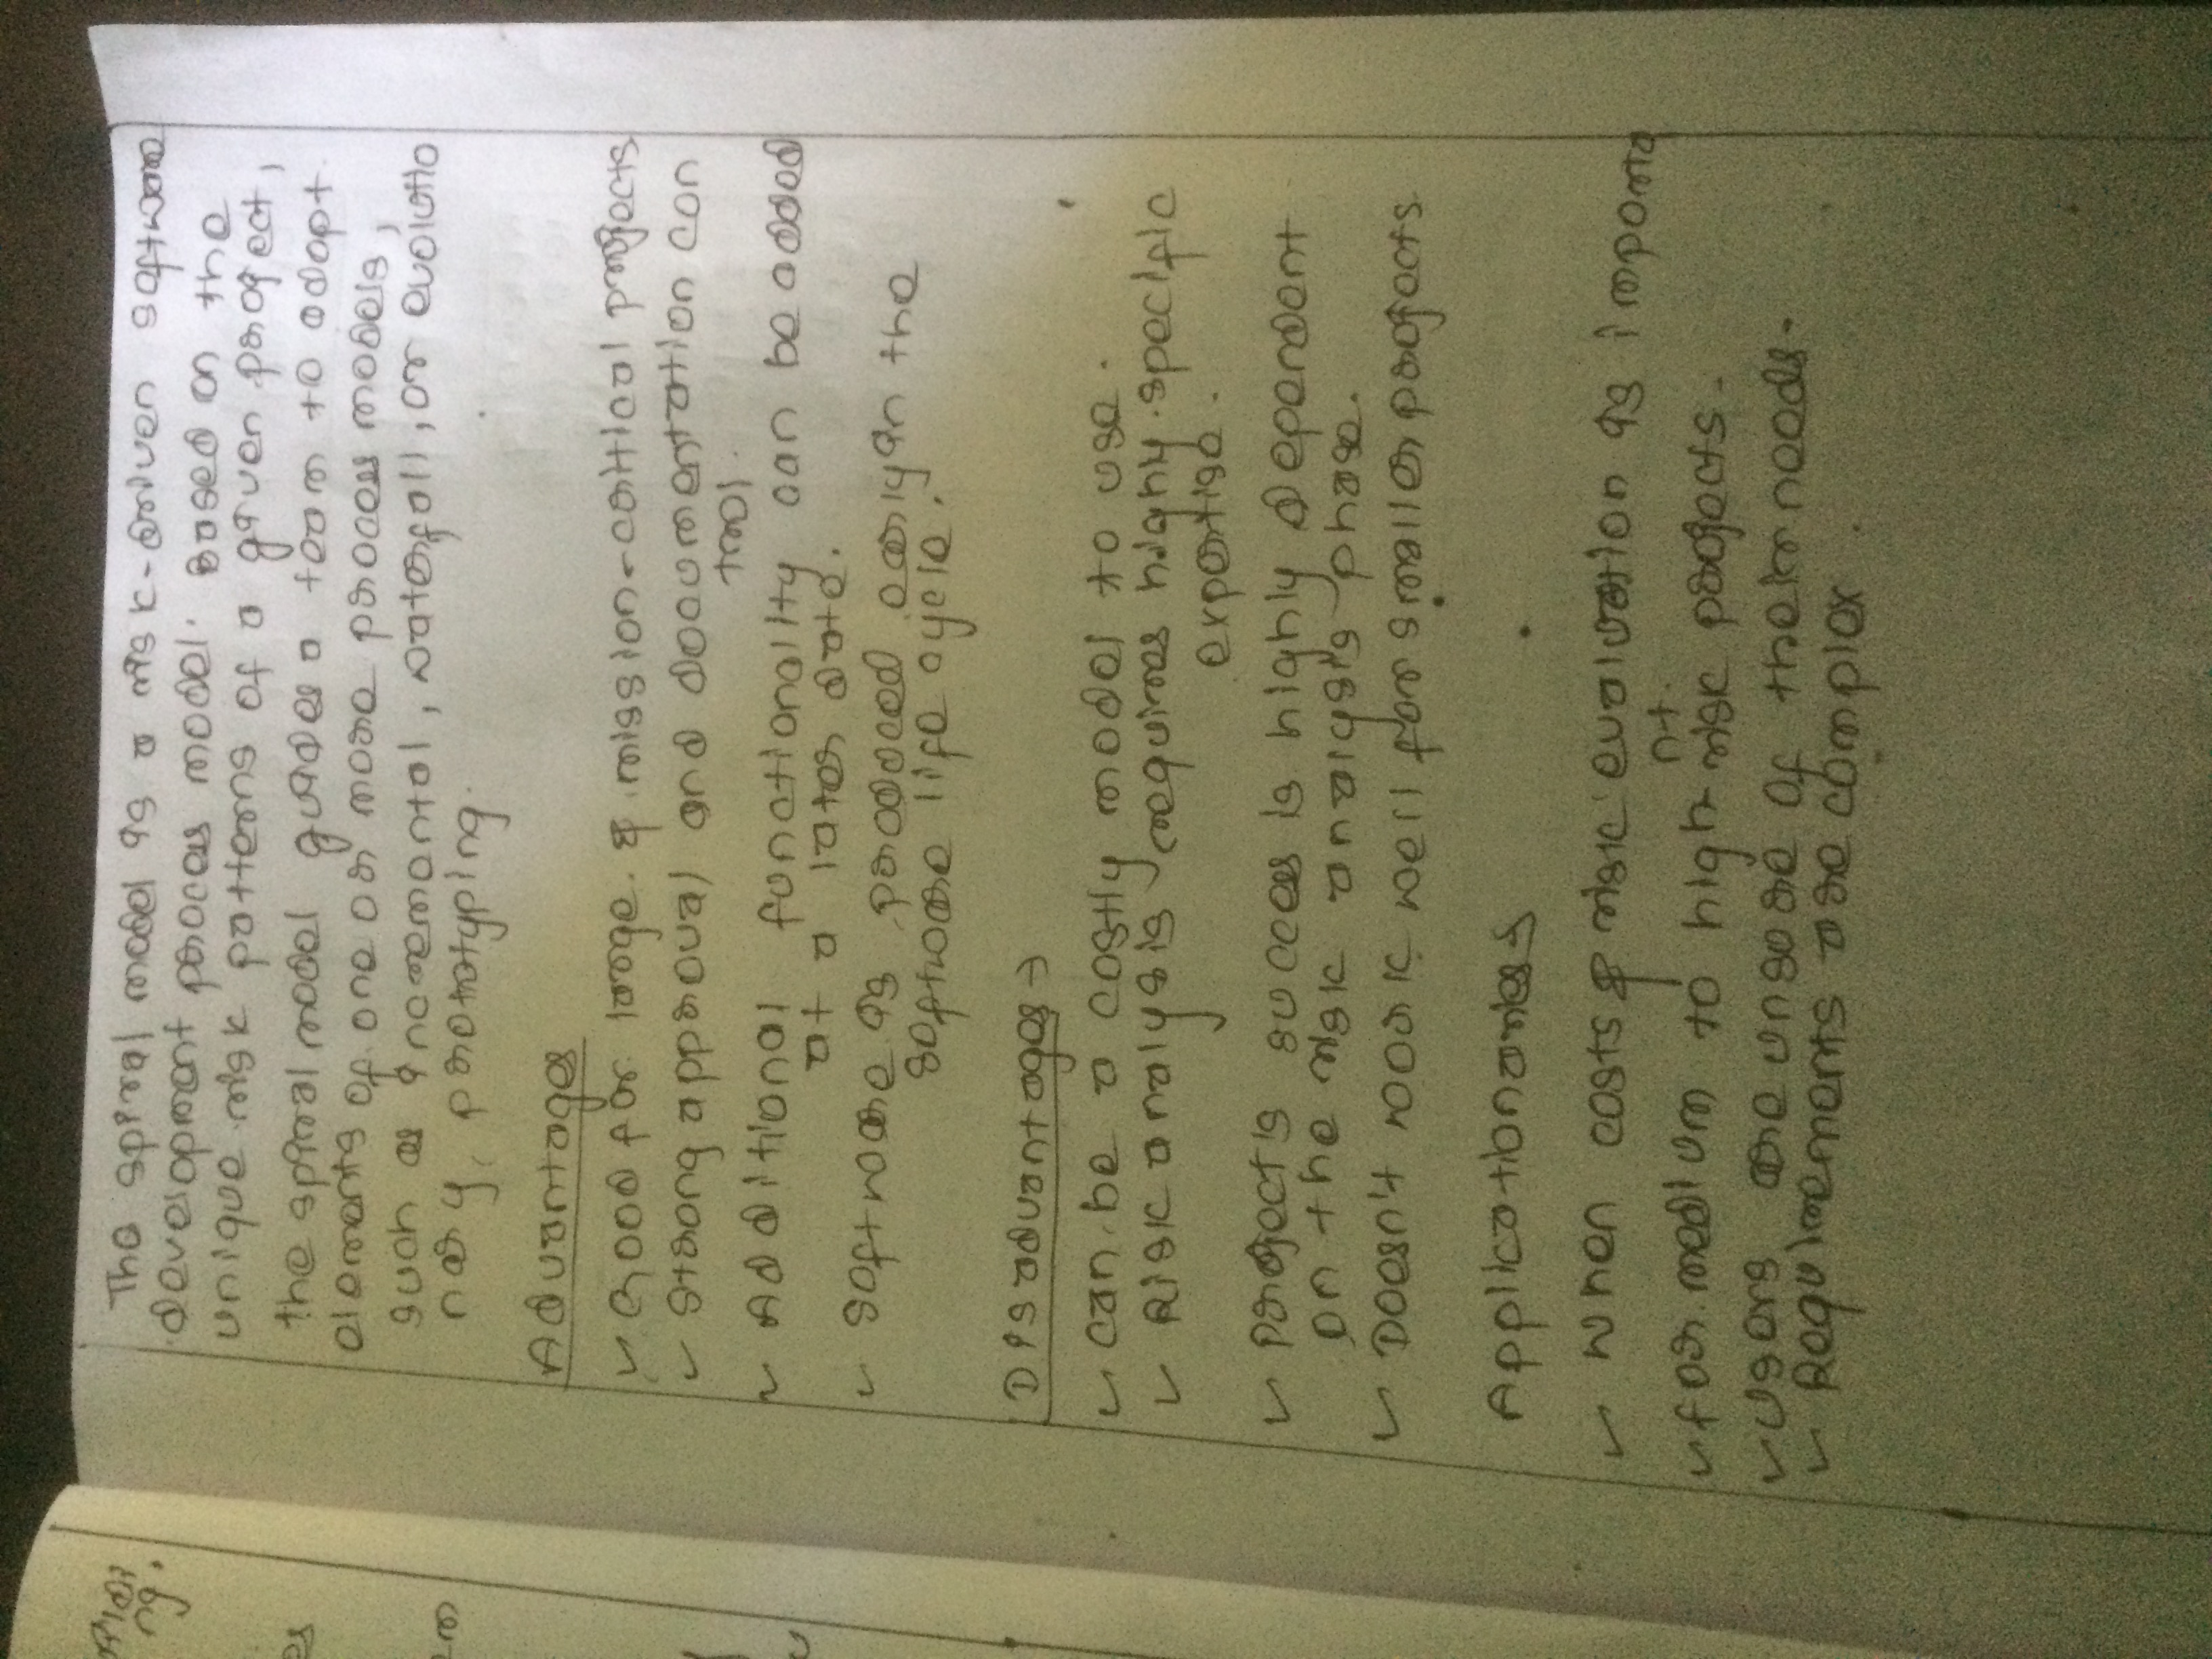 The spiral model is a risk-driven software
development process model. Based on the
unique risk patterns of a given project,
the spiral model guides a team to adopt
elements of one or more process models,
such as incremental, waterfall, or evolutio
nary, prototyping.
Advantages
✓ Good for large & mission-critical projects
✓ Strong approval and documentation con
trol.
✓ Additional functionality can be added
at a later date.
✓ Software is produced early in the
software life cycle.
Disadvantages →
✓ can be a costly model to use.
✓ Risk analysis requires highly specific
expertise.
✓ Project's success is highly dependent
on the risk analysis phase.
✓ Doesn't work well for smaller projects
✓ When costs & risk evaluation is importa
nt.
✓ for medium to high-risk projects.
✓ Users are unsure of their needs.
✓ Requirements are complex.
ng.
es